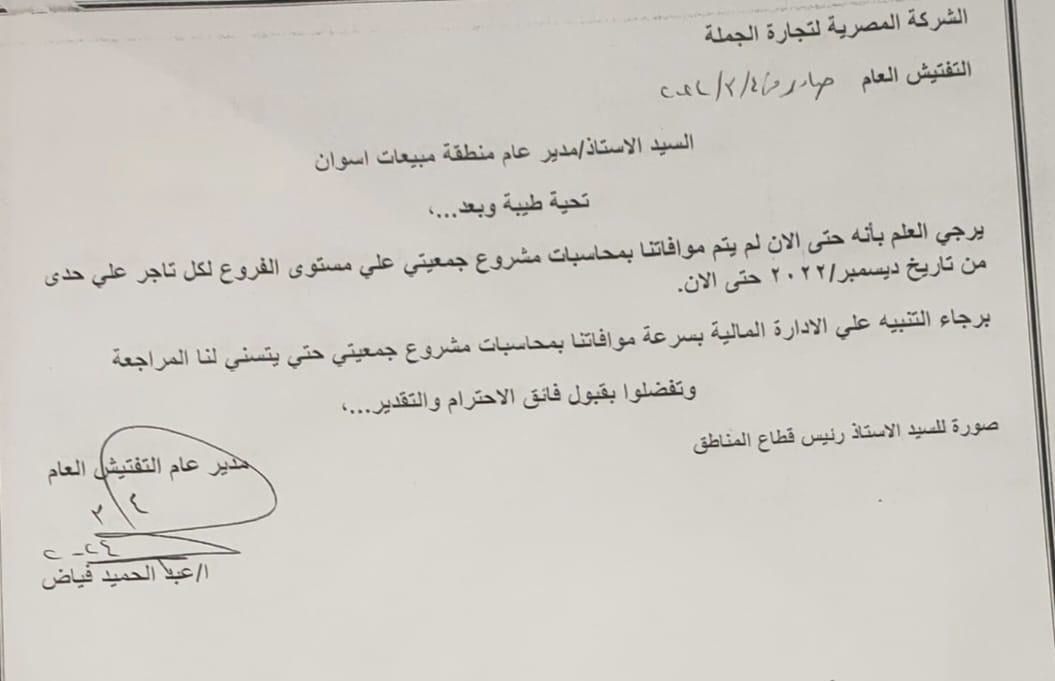 الشركة المصرية لتجارة الجملة
التفتيش العام صادر
السيد الاستاذ/مدير عام منطقة مبيعات اسوان
تحية طيبة وبعد...،
يرجي العلم بأنه حتى الان لم يتم موافاتنا بمحاسبات مشروع جمعيتي علي مستوى الفروع لكل تاجر علي حدى
من تاريخ ديسمبر/٢٠٢٢ حتى الان.
برجاء التنبيه علي الادارة المالية بسرعة موافاتنا بمحاسبات مشروع جمعيتي حتي يتسني لنا المراجعة
وتفضلوا بقبول فائق الاحترام والتقدير...،
صورة للسيد الاستاذ رئيس قطاع المناطق
مدير عام التفتيش العام
٤/٣
٢٠٢٤
ا/عبد الحميد فياض